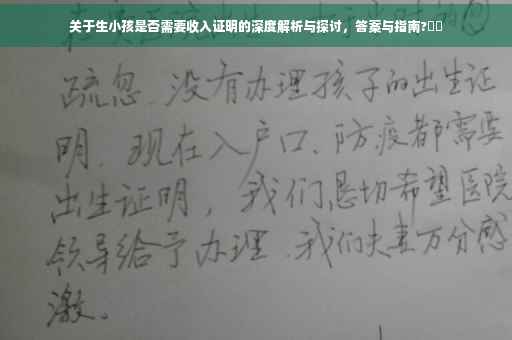 关于生小孩是否需要收入证明的深度解析与探讨，答案与指南?
疏忽.没有办理孩子的出生证
明.现在入户口、防疫都需要
出生证明，我们恳切希望医院
领导给予办理.我们夫妻万分感
激。